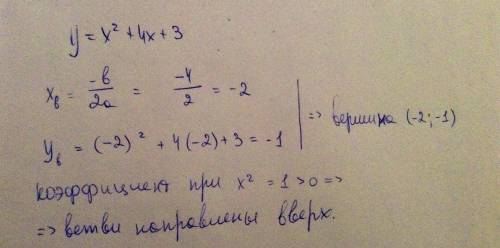 y = x² + 4x + 3
xв = -b/2a = -4/2 = -2
yв = (-2)² + 4(-2) + 3 = -1
=> вершина (-2; -1)
коэффициент при x² = 1 > 0 =>
=> ветви направлены вверх.